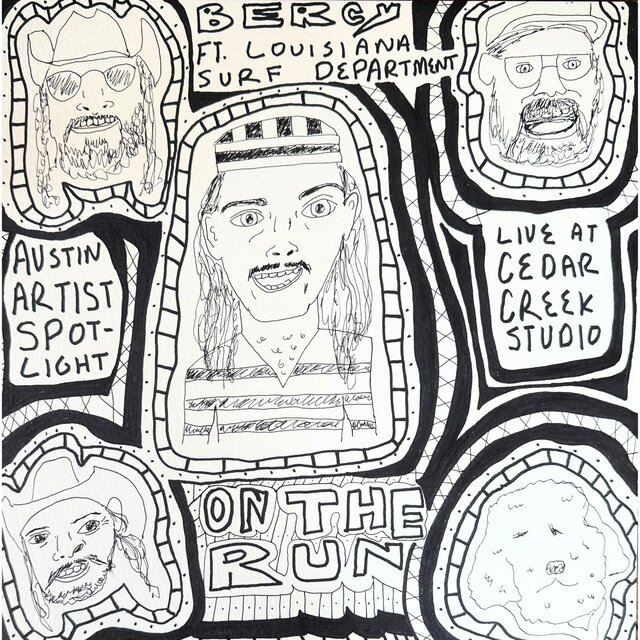 BERCY
FT. LOUISIANA
SURF DEPARTMENT
AUSTIN
ARTIST
SPOT-
LIGHT
LIVE AT
CEDAR
CREEK
STUDIO
ON THE
RUN